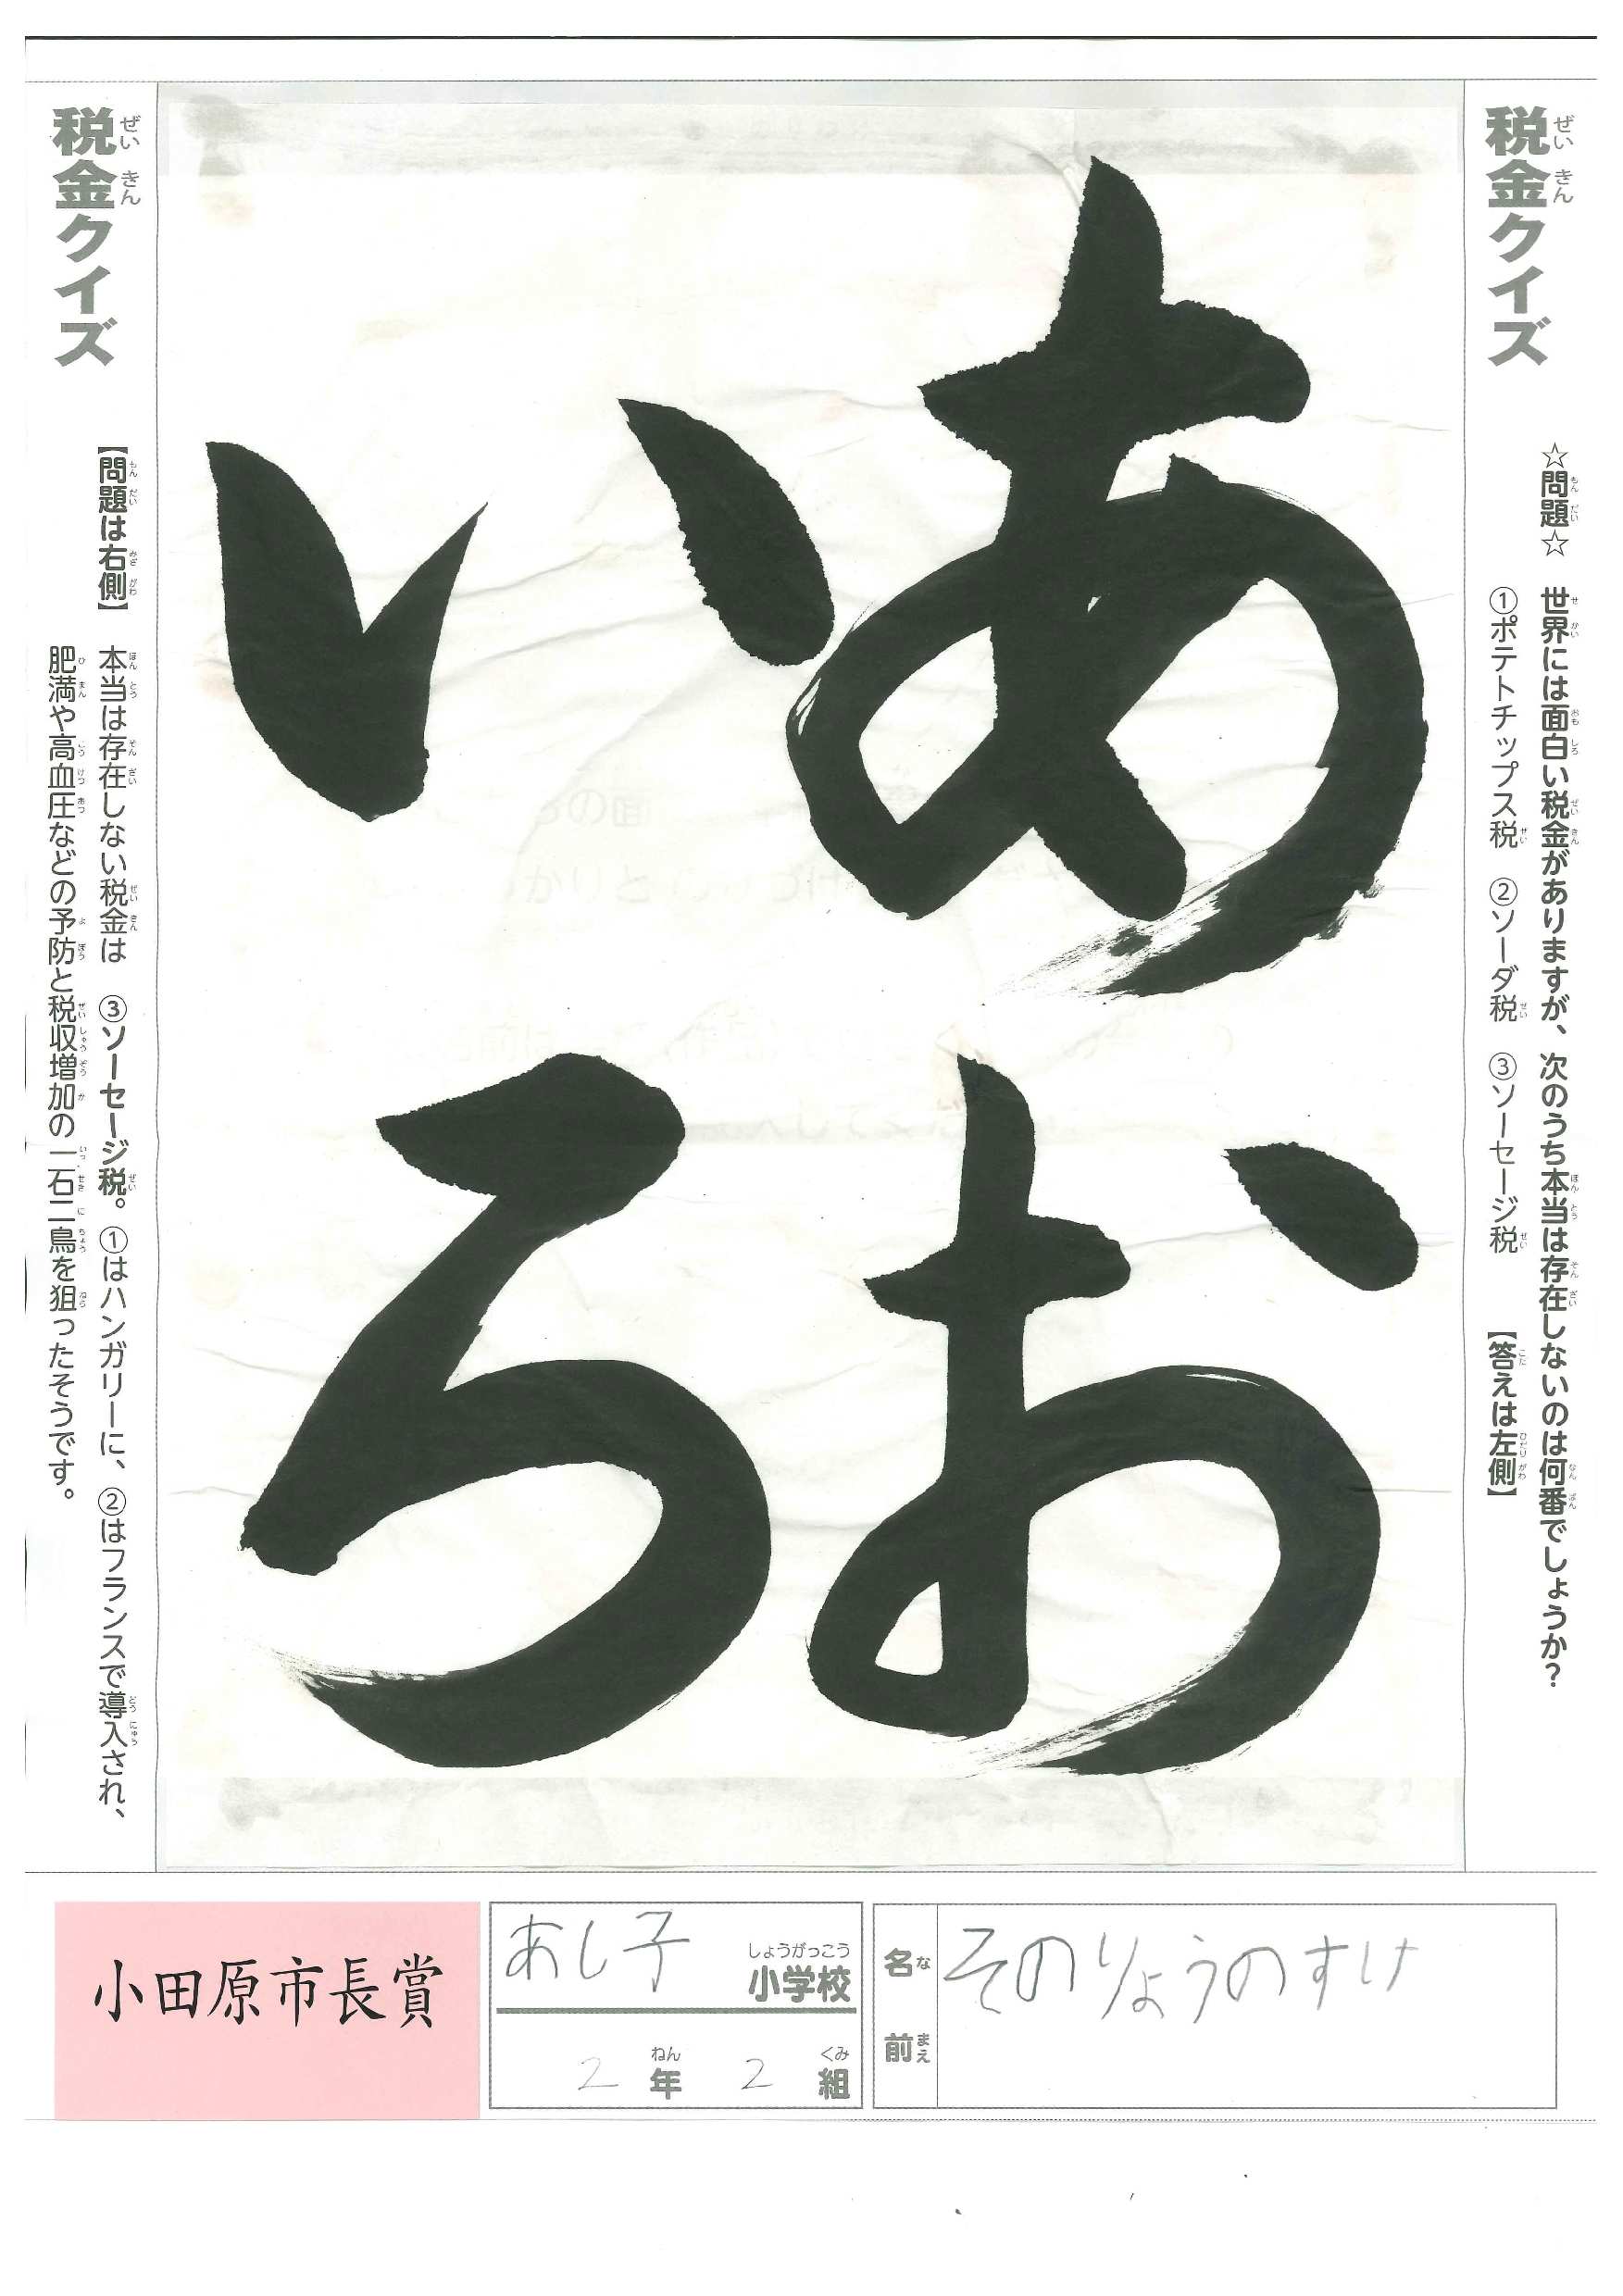 税金クイズ
☆問題☆ 世界には面白い税金がありますが、次のうち本当は存在しないのは何番でしょうか?
①ポテトチップス税 ②ソーダ税 ③ソーセージ税 【答えは左側】
あお
いろ
税金クイズ
【問題は右側】 本当は存在しない税金は ③ソーセージ税。①はハンガリーに、②はフランスで導入され、
肥満や高血圧などの予防と税収増加の一石二鳥を狙ったそうです。
小田原市長賞
あし子小学校
2年2組
名前 そのりょうのすけ